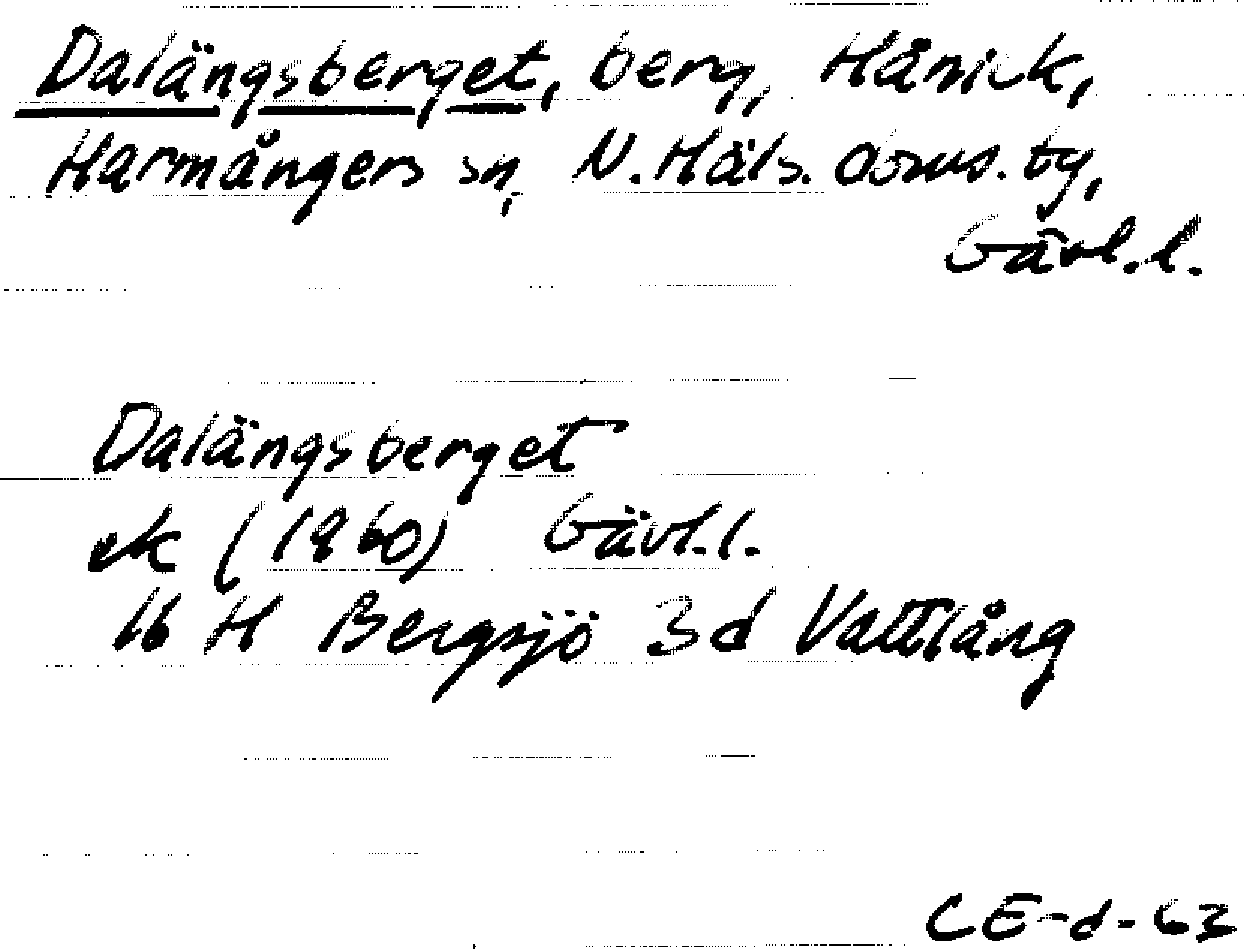 Dalängsberget, berg, Hånick,
Harmångers sn, N. Häls. doms. by,
Gävl. l.
Dalängsberget
ek (1960) Gävl. l.
16 H Bergsjö 3d Vattlång
CE-d-63